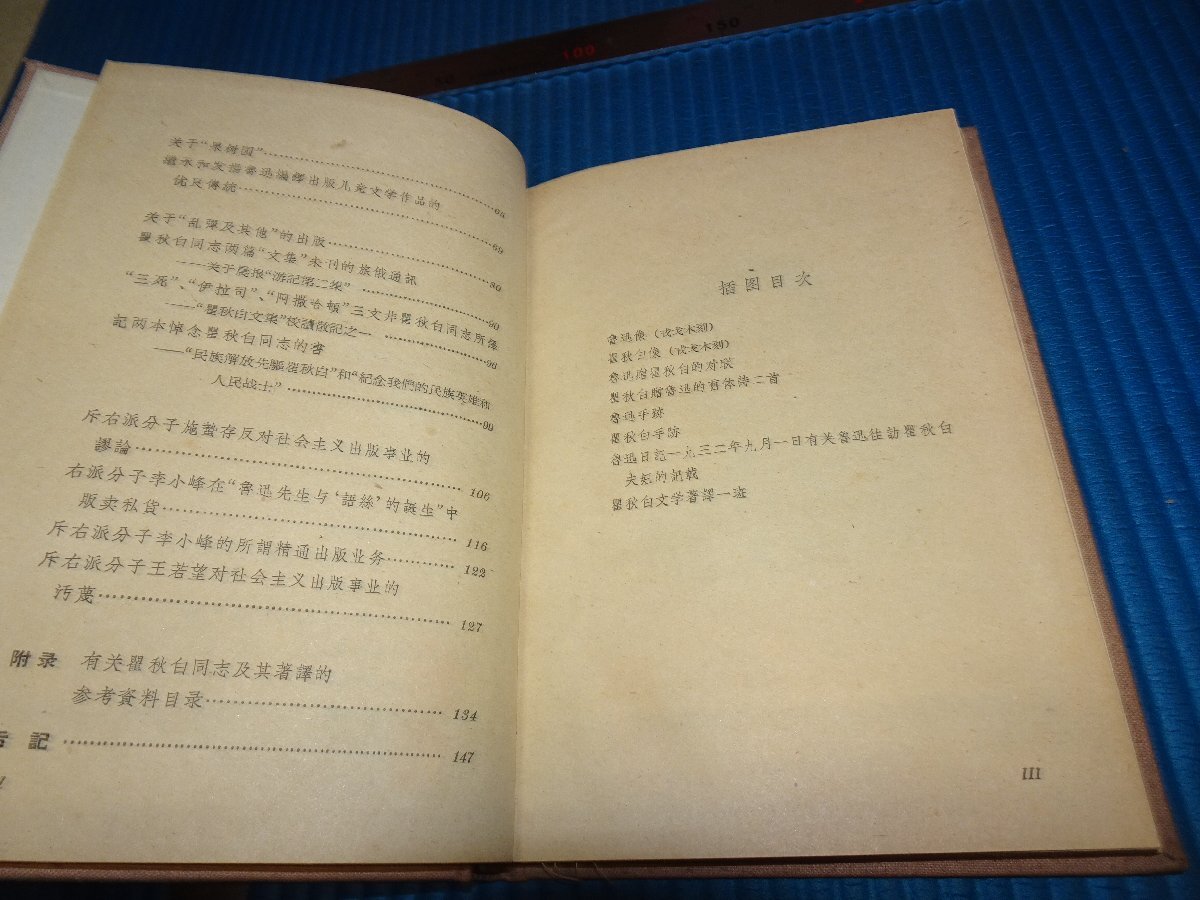 关于“果树园”……68
继承和发揚魯迅編繹出版儿童文学作品的
优良傳統……69
关于“乱彈及其他”的出版……80
瞿秋白同志两篇“文集”未刊的旅俄通訊
——关于晨报“游記第二集”……90
“三死”、“伊拉司”、“阿撒哈頓”三文非瞿秋白同志所繹
——“瞿秋白文集”校讀散記之一……96
記两本悼念瞿秋白同志的書
——“民族解放先驅瞿秋白”和“紀念我們的民族英雄和
人民战士”……99
斥右派分子施蟄存反对社会主义出版事业的
謬論……106
右派分子李小峰在“魯迅先生与‘語絲’的誕生”中
版卖私貨……116
斥右派分子李小峰的所謂精通出版业务……122
斥右派分子王若望对社会主义出版事业的
污蔑……127
附录 有关瞿秋白同志及其著譯的
参考資料目录……134
后記……147
插图目次
魯迅像（戎戈木刻）
瞿秋白像（戎戈木刻）
魯迅贈瞿秋白的对联
瞿秋白贈魯迅的旧体詩二首
魯迅手跡
瞿秋白手跡
魯迅日記一九三二年九月一日有关魯迅往訪瞿秋白
夫妇的記载
瞿秋白文学著譯一斑
III
100
150